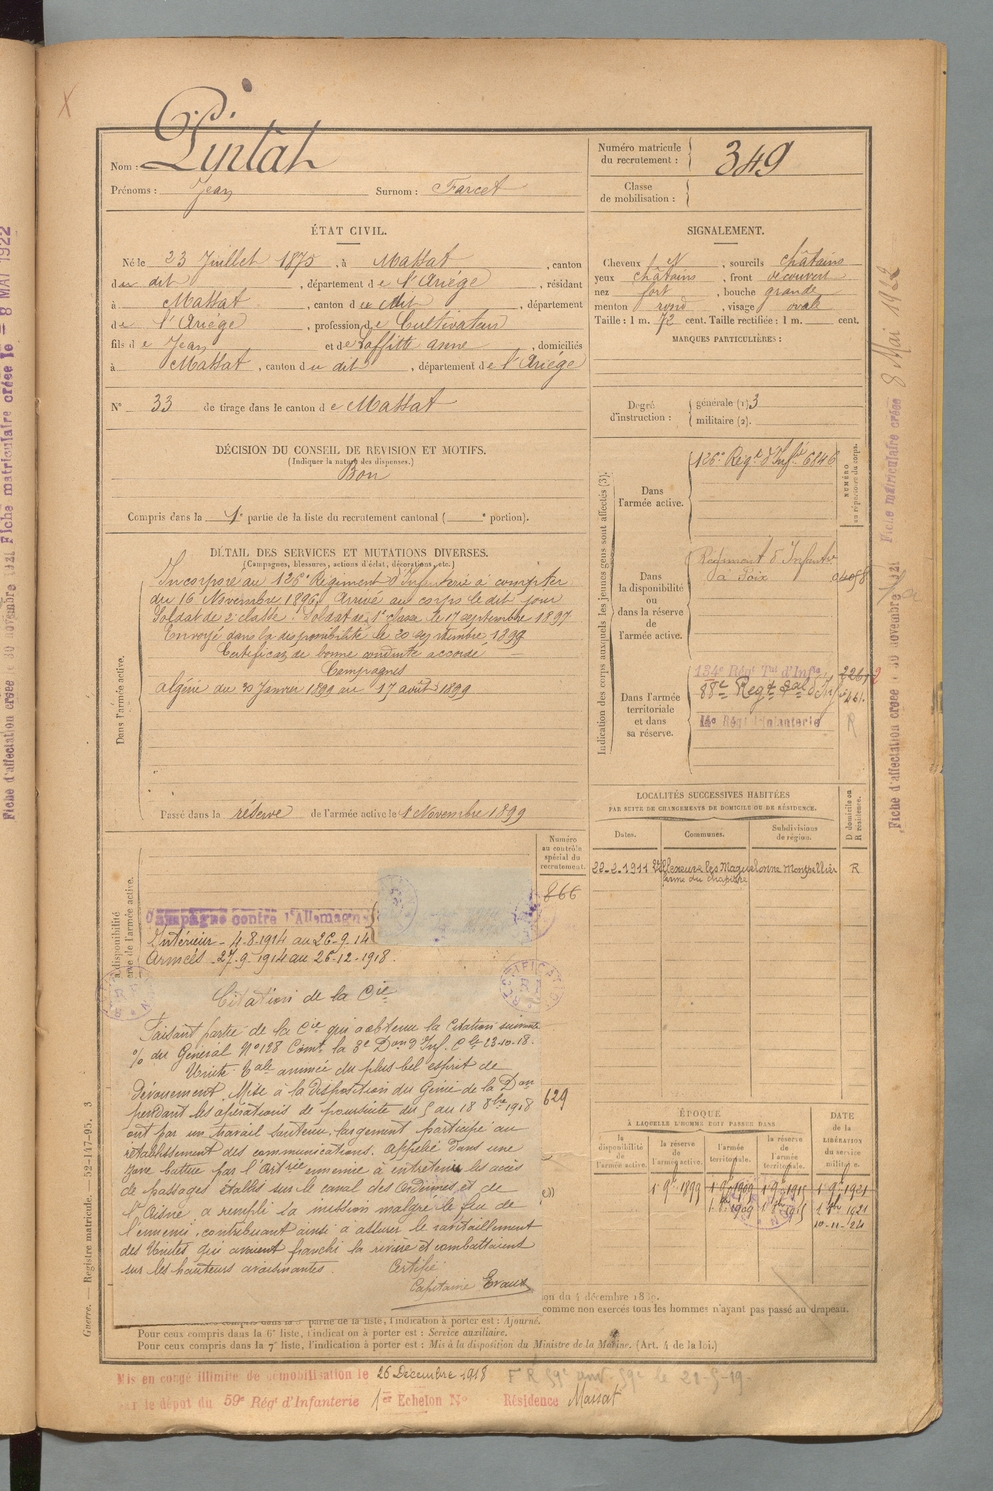 Nom : Pintat
Numéro matricule du recrutement : 349
Prénoms : Jean Surnom : Farcet
Classe de mobilisation :
ÉTAT CIVIL.
Né le 23 Juillet 1875, à Massat, canton
du dit, département de l'Ariége, résidant
à Massat, canton du dit, département
de l'Ariége, profession de Cultivateur
fils de Jean et de Laffitte anne, domiciliés
à Massat, canton du dit, département de l'Ariége
N° 33 de tirage dans le canton de Massat
SIGNALEMENT.
Cheveux N, sourcils châtains
yeux châtains, front découvert
nez fort, bouche grande
menton rond, visage ovale
Taille : 1 m. 72 cent. Taille rectifiée : 1 m. cent.
MARQUES PARTICULIÈRES :
Degré d'instruction : générale (1) 3
militaire (2).
DÉCISION DU CONSEIL DE REVISION ET MOTIFS.
(Indiquer la nature des dispenses.)
Bon
Compris dans la 1e partie de la liste du recrutement cantonal ( e portion).
DÉTAIL DES SERVICES ET MUTATIONS DIVERSES.
(Campagnes, blessures, actions d'éclat, décorations, etc.)
Dans l'armée active.
Incorporé au 126e Régiment d'Infanterie à compter
du 16 Novembre 1896, Arrivé au corps le dit jour
Soldat de 2e classe. Soldat de 1e classe le 17 septembre 1897
Envoyé dans la disponibilité le 20 septembre 1899
Certificat de bonne conduite accordé
Campagnes
algérie du 30 Janvier 1899 au 17 août 1899
Passé dans la réserve de l'armée active le 1 Novembre 1899
Indication des corps auxquels les jeunes gens sont affectés (3).
NUMÉRO au répertoire du corps.
Dans l'armée active.
126e Régt d'Inf. 6846
Dans la disponibilité ou dans la réserve de l'armée active.
Régiment d'Infantrie
à Foix
Dans l'armée territoriale et dans sa réserve.
134e Régt Tal d'Infie
88e Regt
14e Régt d'Infanterie
R
LOCALITÉS SUCCESSIVES HABITÉES
PAR SUITE DE CHANGEMENTS DE DOMICILE OU DE RÉSIDENCE.
D domicile ou R résidence.
Dates. Communes. Subdivisions de région.
22-2-1911 Villeneuve les Maguelonne Montpellier R
Numéro au contrôle spécial du recrutement.
866
Campagne contre l'Allemagne
Intérieur - 4-8-1914 au 26-9-14
Armées - 27-9-1914 au 26-12-1918.
RECTIFICATION
Citation de la Cie
Faisant partie de la Cie qui a obtenu la citation suivante
% du Général N° 128 Comt la 3e Don d'Inf. Cle 23-10-18.
Unité Tale animée du plus bel esprit de
dévouement. Mise à la disposition du Génie de la Don
pendant les opérations de poursuite du 5 au 18 8bre 1918
ont par un travail soutenu, largement participé au
rétablissement des communications. Appelée dans une
zone battue par l'Artrie ennemie à entretenir les accès
de passages établis sur le canal des Ardennes et de
l'Aisne, a rempli sa mission malgré le feu de
l'ennemi, contribuant ainsi à assurer le ravitaillement
des Unités qui avaient franchi la rivière et combattaient
sur les hauteurs avoisinantes.
Certifié
Capitaine Evaux
629
ÉPOQUE
À LAQUELLE L'HOMME DOIT PASSER DANS
DATE de la LIBÉRATION du service militaire.
la disponibilité de l'armée active. la réserve de l'armée active. l'armée territoriale. la réserve de l'armée territoriale.
1 9e 1899 1 9e 1909 1 9e 1915 1 9e 1921
10-11-24
on du 4 décembre 1889.
comme non exercés tous les hommes n'ayant pas passé au drapeau.
partie de la liste, l'indication à porter est : Ajourné.
Pour ceux compris dans la 6e liste, l'indication à porter est : Service auxiliaire.
Pour ceux compris dans la 7e liste, l'indication à porter est : Mis à la disposition du Ministre de la Marine. (Art. 4 de la loi.)
Mis en congé illimité de démobilisation le 26 Décembre 1918
par le dépôt du 59e Régt d'Infanterie 1er Echelon N° Résidence Massat
Guerre. — Registre matricule. — 52-147-95. 3
Fiche d'affectation créée le 30 novembre 1921 Fiche matriculaire créée le = 8 MAI 1922
Fiche d'affectation créée le 30 novembre 1921 Fiche matriculaire créée 8 Mai 1922